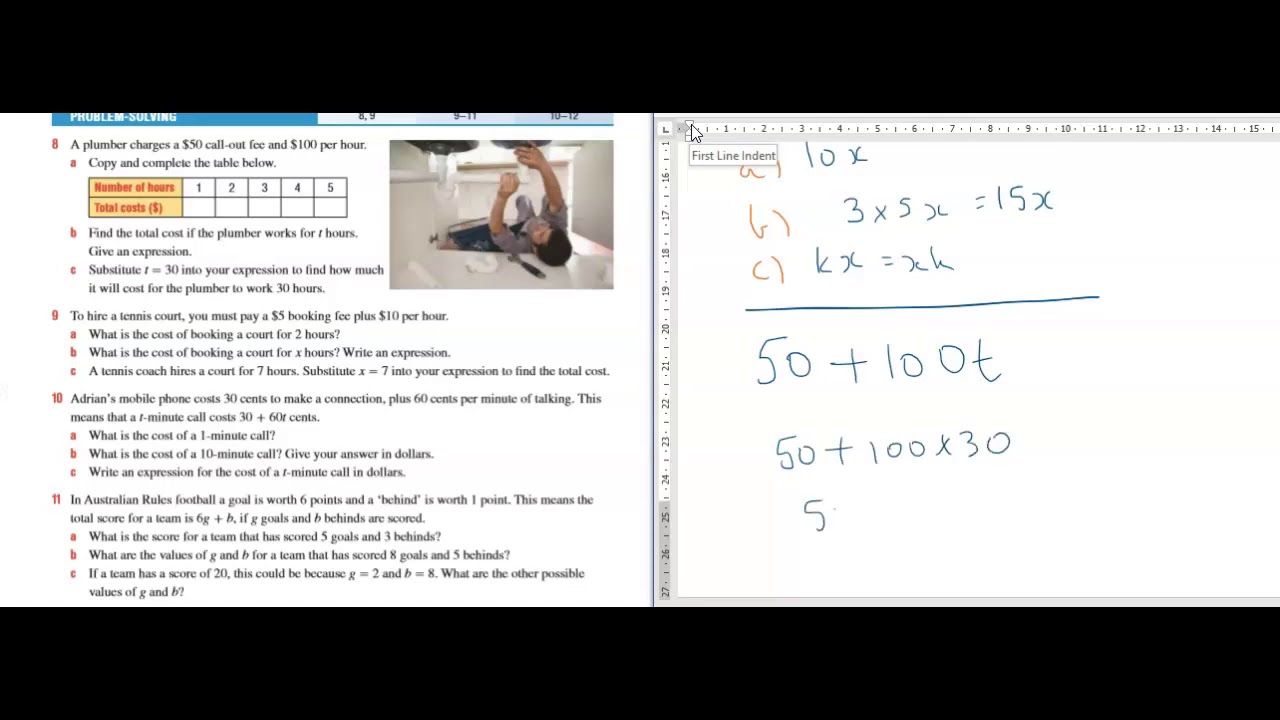 PROBLEM-SOLVING 8, 9 9–11 10–12
8 A plumber charges a $50 call-out fee and $100 per hour.
a Copy and complete the table below.
Number of hours 1 2 3 4 5
Total costs ($)
b Find the total cost if the plumber works for t hours.
Give an expression.
c Substitute t = 30 into your expression to find how much
it will cost for the plumber to work 30 hours.
9 To hire a tennis court, you must pay a $5 booking fee plus $10 per hour.
a What is the cost of booking a court for 2 hours?
b What is the cost of booking a court for x hours? Write an expression.
c A tennis coach hires a court for 7 hours. Substitute x = 7 into your expression to find the total cost.
10 Adrian's mobile phone costs 30 cents to make a connection, plus 60 cents per minute of talking. This
means that a t-minute call costs 30 + 60t cents.
a What is the cost of a 1-minute call?
b What is the cost of a 10-minute call? Give your answer in dollars.
c Write an expression for the cost of a t-minute call in dollars.
11 In Australian Rules football a goal is worth 6 points and a 'behind' is worth 1 point. This means the
total score for a team is 6g + b, if g goals and b behinds are scored.
a What is the score for a team that has scored 5 goals and 3 behinds?
b What are the values of g and b for a team that has scored 8 goals and 5 behinds?
c If a team has a score of 20, this could be because g = 2 and b = 8. What are the other possible
values of g and b?
L 1 2 3 4 5 6 7 8 9 10 11 12 13 14 15
First Line Indent
16 17 18 19 20 21 22 23 24 25 26 27
a) 10x
b) 3 × 5x = 15x
c) kx = xk
50 + 100t
50 + 100 × 30
5